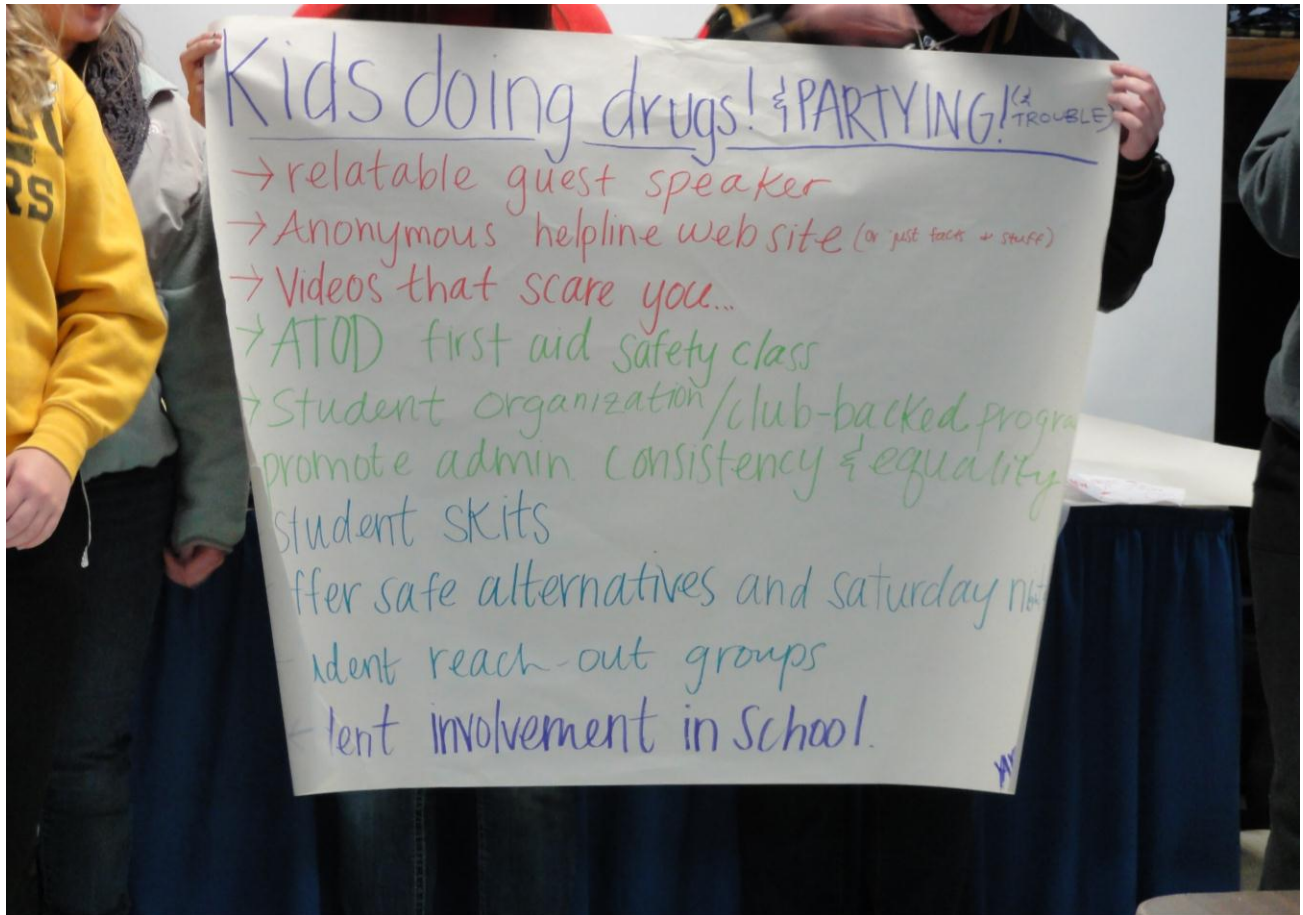 Kids doing drugs! & PARTYING! (& TROUBLE)
→ relatable guest speaker
→ Anonymous helpline website (or just facts + stuff)
→ Videos that scare you...
→ ATOD first aid safety class
→ Student organization/club-backed progra
promote admin consistency & equality
student skits
ffer safe alternatives and saturday
udent reach-out groups
dent involvement in School.
RS